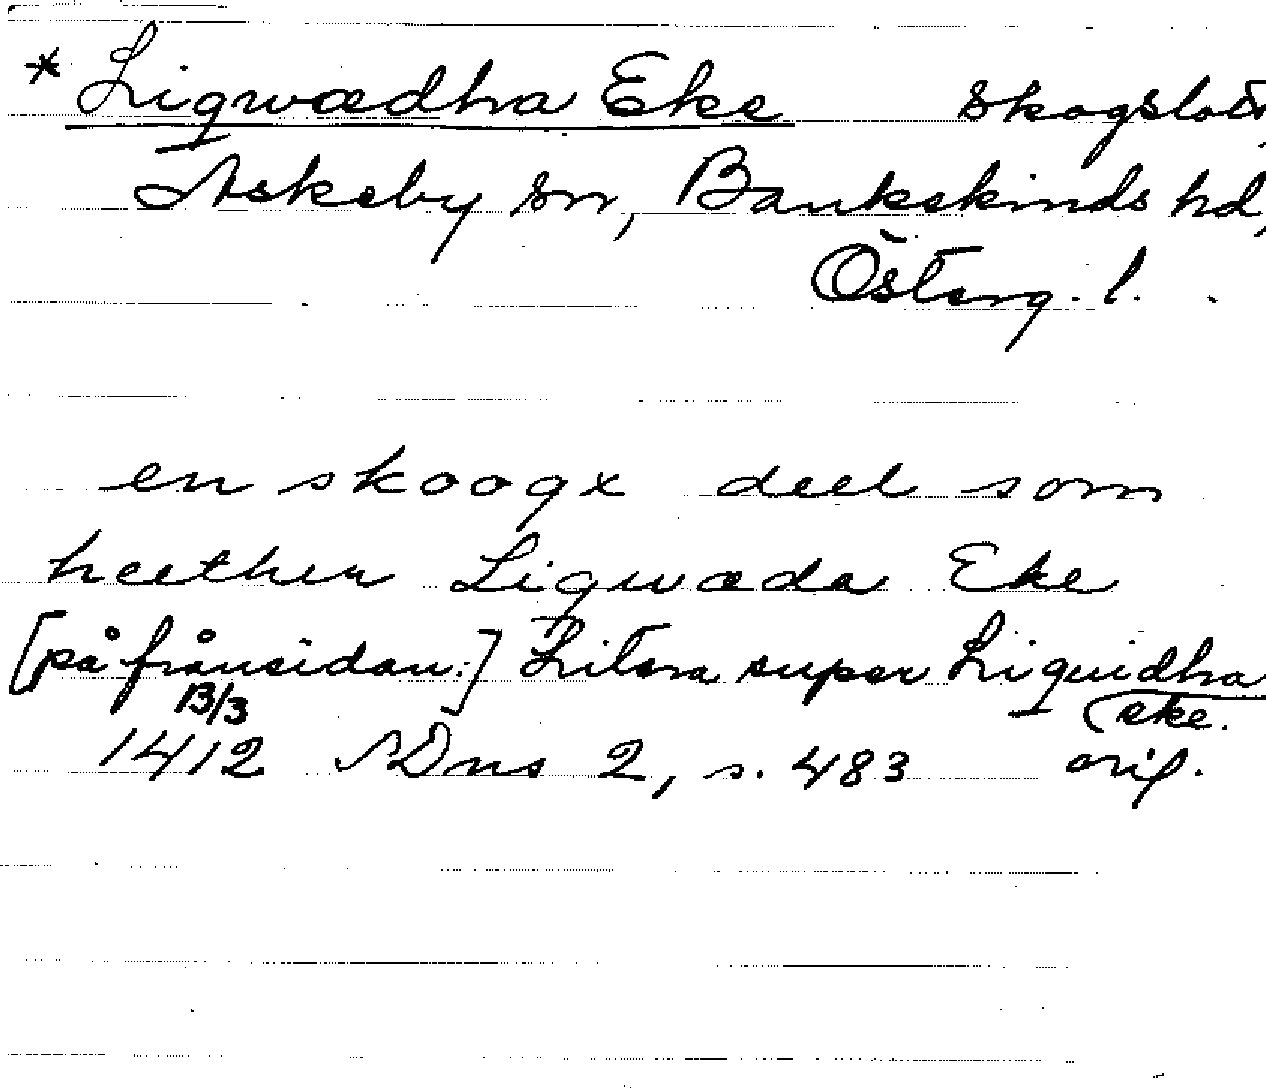 * Liqwædha Eke skogslott
Askeby sn, Bankekinds hd,
Österg. l.
en skoogx deel som
heether Liqwæda Eke
[på frånsidan:] Litera super Liquidha
eke.
13/3
1412 SDns 2, s. 483 orig.